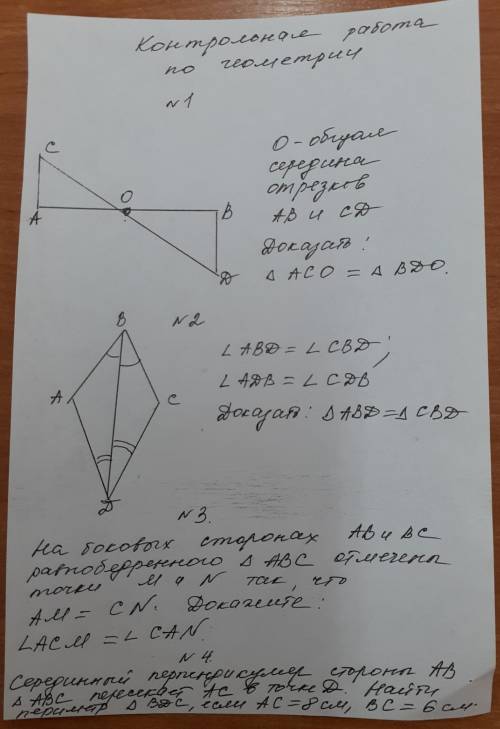 Контрольная работа
по геометрии
№1
C
O
A
B
D
O - общая
середина
отрезков
AB и CD
Доказать:
△ ACO = △ BDO.
B
№2
A
C
D
∠ABD = ∠CBD;
∠ADB = ∠CDB
Доказать: △ABD = △CBD
№3.
На боковых сторонах AB и BC
равнобедренного △ ABC отмечены
точки M и N так, что
AM = CN. Докажите:
∠ACM = ∠CAN.
№4.
Серединный перпендикуляр стороны AB
△ABC пересекает AC в точке D. Найти
периметр △ BDC, если AC = 8 см, BC = 6 см.